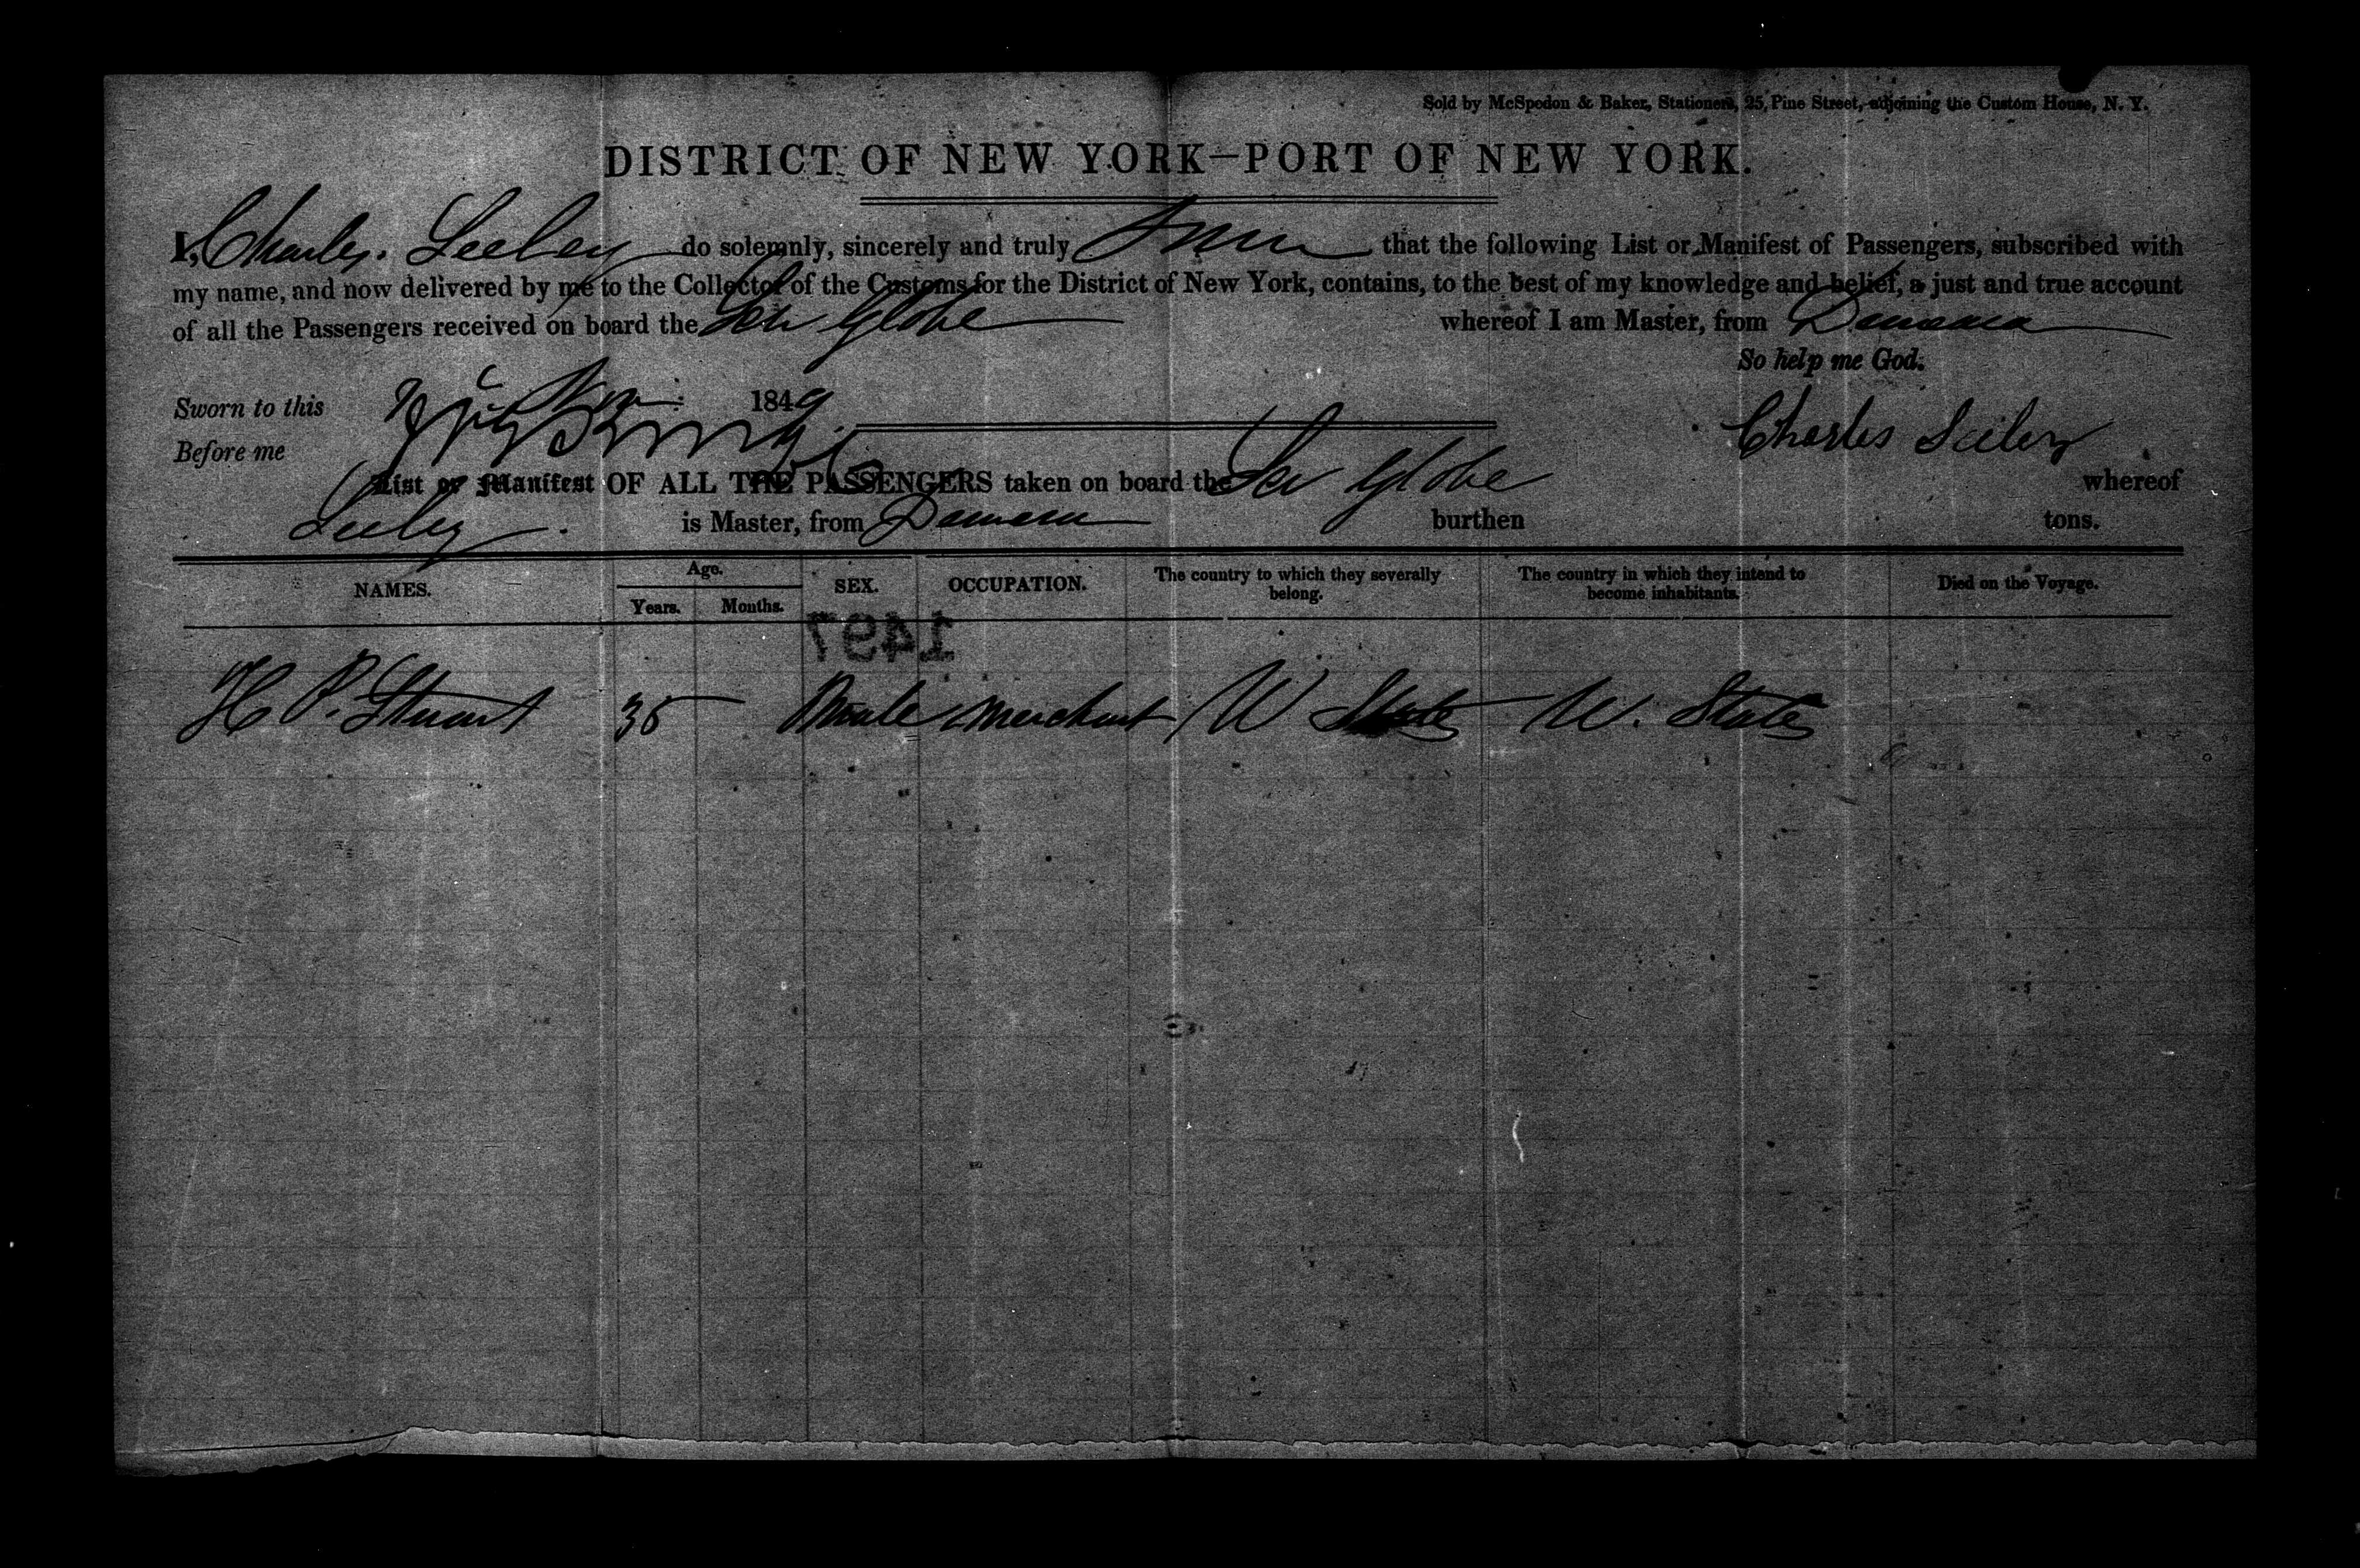 Sold by McSpedon & Baker, Stationers, 25, Pine Street, adjoining the Custom House, N. Y.
DISTRICT OF NEW YORK—PORT OF NEW YORK.
I, Charles Seeley do solemnly, sincerely and truly that the following List or Manifest of Passengers, subscribed with
my name, and now delivered by me to the Collector of the Customs for the District of New York, contains, to the best of my knowledge and belief, a just and true account
of all the Passengers received on board the Sch Globe whereof I am Master, from Demerara
So help me God.
Sworn to this Nov 1849
Before me
Charles Seeley
List or Manifest OF ALL THE PASSENGERS taken on board the Sch Globe whereof
Seeley is Master, from Demerara burthen tons.
NAMES. Age. Years. Months. SEX. OCCUPATION. The country to which they severally belong. The country in which they intend to become inhabitants. Died on the Voyage.
1497
H P. Stuart 35 Male Merchant U States U. States